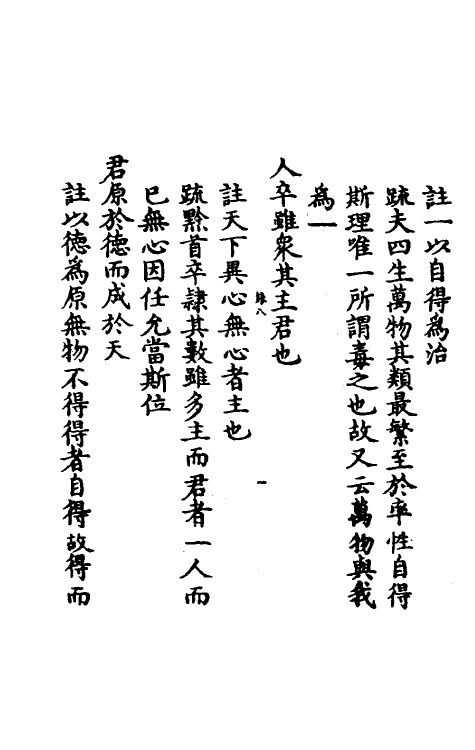 註一以自得為治
䟽夫四生萬物其類最繁至於率性自得
斯理唯一所謂毒之也故又云萬物與我
為一
人卒雖衆其主君也
註天下異心無心者主也
䟽黔首卒隸其數雖多主而君者一人而
已無心因任允當斯位
君原於德而成於天
註以德為原無物不得得者自得故得而